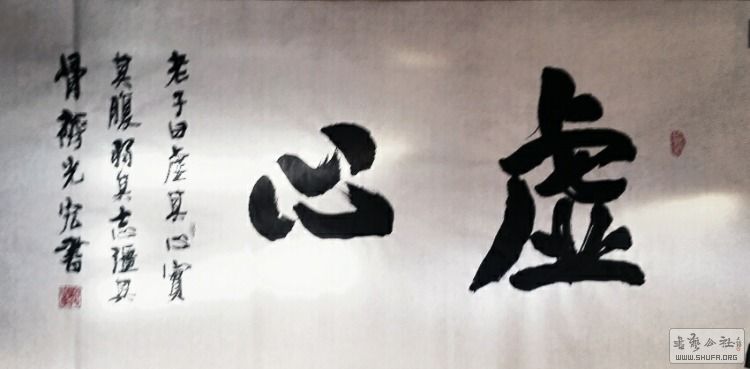 虚心
老子曰虚其心實
其腹弱其志彊其
骨 光宏書
书艺公社
WWW.SHUFA.ORG